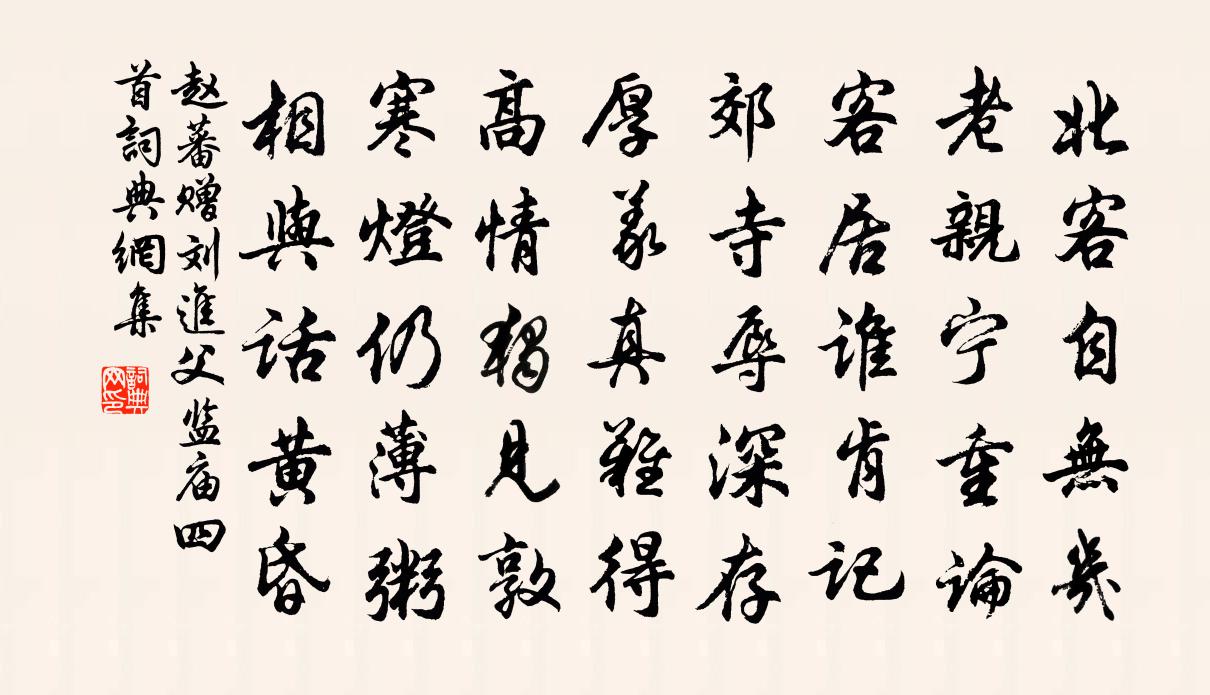 北客自無幾
老親宁重論
客居誰肯記
郊寺辱深存
厚義真難得
高情獨見敦
寒燈仍薄粥
相與話黄昏
赵蕃赠刘進父监庙四
首詞典網集
詞典網印